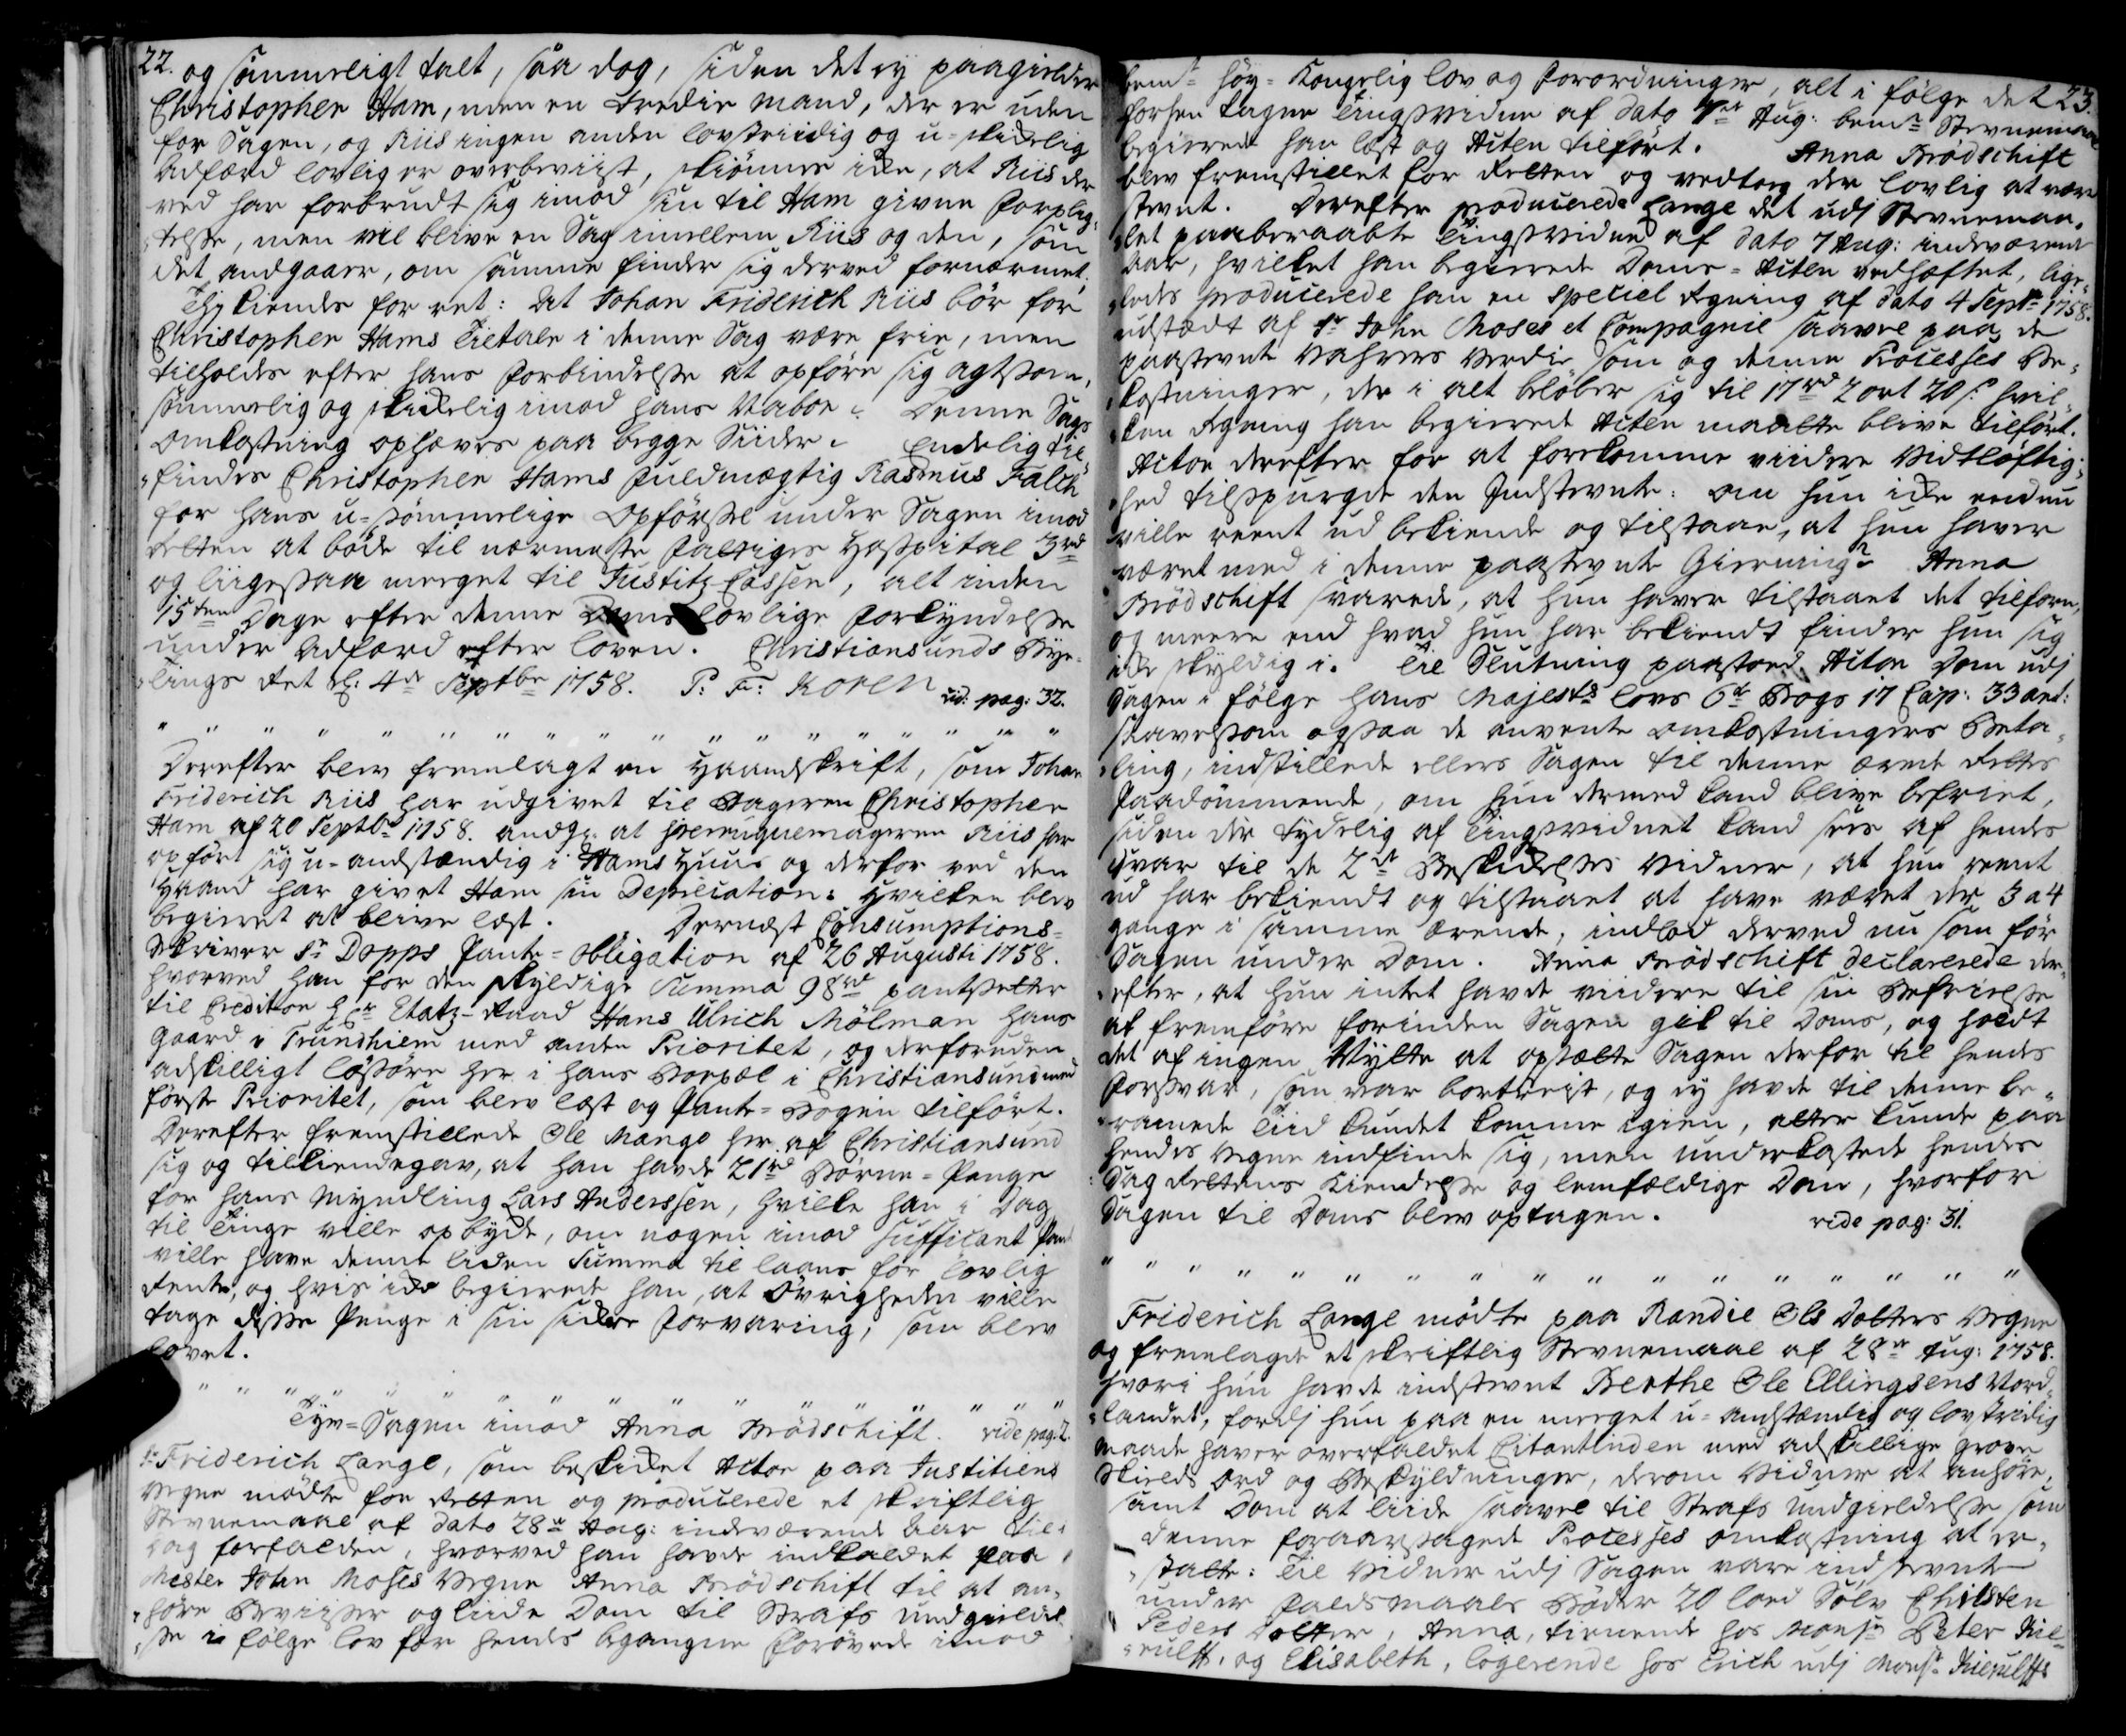 22. og sømmeligt talt, saa dog, siden det ey paagielder
Christopher Ham, men en tredie mand, der er uden
for Sagen, og Riis ingen anden lovstriidig og u-skikelig
Adfærd lovlig er overbeviist, skiønnes ikke, at Riis der
ved har forbrudt sig imod sin til Ham givne Forplig-
telse, men vil blive en Sag imellem Riis og den, som
det andgaaer, om samme finder sig derved fornærmet,
Thi kiendes for ret: At Johan Friderich Riis bør for
Christopher Hams Tiltale i denne Sag være frie, men
tilholdes efter hans Forbindelse at opføre sig agtsom,
sømmelig og skikelig imod hans Naboer. Denne Sags
Omkostning ophæves paa begge Siider. Endelig til-
findes Christopher Hams Fuldmægtig Rasmus Falch
for hans u-sømmelige Opførsel under Sagen imod
Retten at bøde til nærmeste Fattiges Hospital 3 rd
og liigesaa meget til Justitz Cassen, alt inden
15ten Dage efter denne Doms lovlige Forkyndelse
under Adfærd efter loven. Christiansunds Bye-
tings Ret d: 4de Septbr 1758. P: Fr: Koren vid: pag: 32.
Derefter blev fremlagt en Haandskrift, som Johan
Friderich Riis har udgivet til Bageren Christopher
Ham af 20 Septbr 1758. andg: at Perruquemageren Riis har
opført sig u-anstændig i Hams Huus og derfor ved den
Haand har givet Ham sin Deprecation: Hvilken blev
begieret at blive læst. Dernæst Consumptions-
Skriver Sr Dopps Pante-Obligation af 26 Augusti 1758.
hvorved han for den skyldige Summa 98 rd pantsetter
til Creditor Hr Etatz-Raad Hans Ulrich Mølman hans
Gaard i Trundhiem med anden Prioritet, og derforuden
adskilligt løsøre her i hans Bopæl i Christiansund med
første Prioritet, som blev læst og Pante-Bogen tilført.
Derefter fremstillede Ole Mango her af Christiansund
sig og tilkiendegav, at han havde 21 rd Børne-Penge
for hans Myndling Lars Anderssen, hvilke han i Dag
til Tinge ville opbyde, om nogen imod sufficant Pant
ville have denne liden Summa til laans for lovlig
Rente, og hvis ikke begierede han, at Øvrigheden ville
tage disse Penge i sin sikre Forvaring, som blev
lovet.
Tyvs-Sagen imod Anna Brødschift. vide pag: 2.
Sr Friderich Lange, som beskikket Actor paa Justitiens
Vegne mødte for Retten og producerede et skriftlig
Stevnemaal af dato 28de Aug: indeværende Aar til i
Dag forfalden, hvorved han havde indkaldet paa
Mester John Moses Vegne Anna Brødschift til at an-
høre Beviiser og liide Dom til Strafs undgieldel-
se i følge lov for hendes begangne Forøvede imod
23.
bemte høy-Kongelig lov og Forordninger, alt i følge det
forhen tagne Tingsvidne af dato 7de Aug: bemte Stevnemaal
begierede han læst og Acten tilført. Anna Brødschift
blev fremstillet for Retten og vedtog der lovlig at være
stevnt. Derefter producerede Lange det udj Stevnemaa-
let paaberaabte Tingsvidne af dato 7 Aug: indeværende
Aar, hvilket han begierede Doms-Acten vedhæftet, lige-
ledes producerede han en speciel Regning af dato 4 Septbr 1758.
udstædt af Sr John Moses et Compagnie saavel paa de
paastevnte Vahrers Verdie som og denne Processes Be-
kostninger, der i alt beløber sig til 17 rd 2 ort 20 s: hvil-
ken Regning han begierede Acten maatte blive tilført.
Actor derefter for at forekomme viidere Vidtløftig-
hed tilspurgte den Indstevnte: om hun ikke endnu
ville reent ud bekiende og tilstaae, at hun haver
været med i denne paastevnte Gierning? Anna
Brødschift svarede, at hun haver tilstaaet det tilforn,
og meere end hvad hun har bekiendt finder hun sig
ikke skyldig i. Til Slutning paastoed Actor Dom udj
Sagen i følge hans Majests lovs 6te Bogs 17 Cap: 33 art:
saavelsom ogsaa de anvente Omkostningers Beta-
ling, indstillede ellers Sagen til denne ærede Rettes
Paadømmende, om hun dermed kand blive befriet,
siden det tydelig af Tingsvidnet kand sees af hendes
svar til de 2de Beskikkelses Vidner, at hun reent
ud har bekiendt og tilstaaet at have været der 3 a 4
gange i samme ærende, indlod derved nu som før
Sagen under Dom. Anna Brødschift declarerede der-
efter, at hun intet havde viidere til sin Befrielse
at fremføre forinden Sagen gik til Doms, og holdt
det af ingen Nytte at opsætte Sagen derfor til hendes
Forsvar, som var bortreist, og ey havde til denne be-
ramede Tiid kundet komme igien, atter kunde paa
hendes Vegne indfinde sig, men underkastede hendes
Sag Rettens Kiendelse og lemfældige Dom, hvorfor
Sagen til Doms blev optagen. vide pag: 31.
Friderich Lange mødte paa Randie Ols Datters Vegne
og fremlagde et skriftlig Stevnemaal af 28de Aug: 1758.
hvori hun havde indstevnt Berthe Ole Ellingsens Nord-
landet, fordj hun paa en meget u-anstændig og lovstridig
maade haver overfaldet Citantinden med adskillige grove
Skields Ord og Beskyldninger, derom Vidner at anhøre,
samt Dom at liide saavel til Strafs Undgieldelse som
denne foraarsagede Processes omkostning at er-
statte: Til Vidner udj Sagen vare indstevnte
under Faldsmaals Bøder 20 lod Sølv Chirsten
Peders Datter, Anna, tienende hos Monsr Peter Kie-
rulff, og Elisabeth, logerende hos Erich udj Monsr Kierulffs